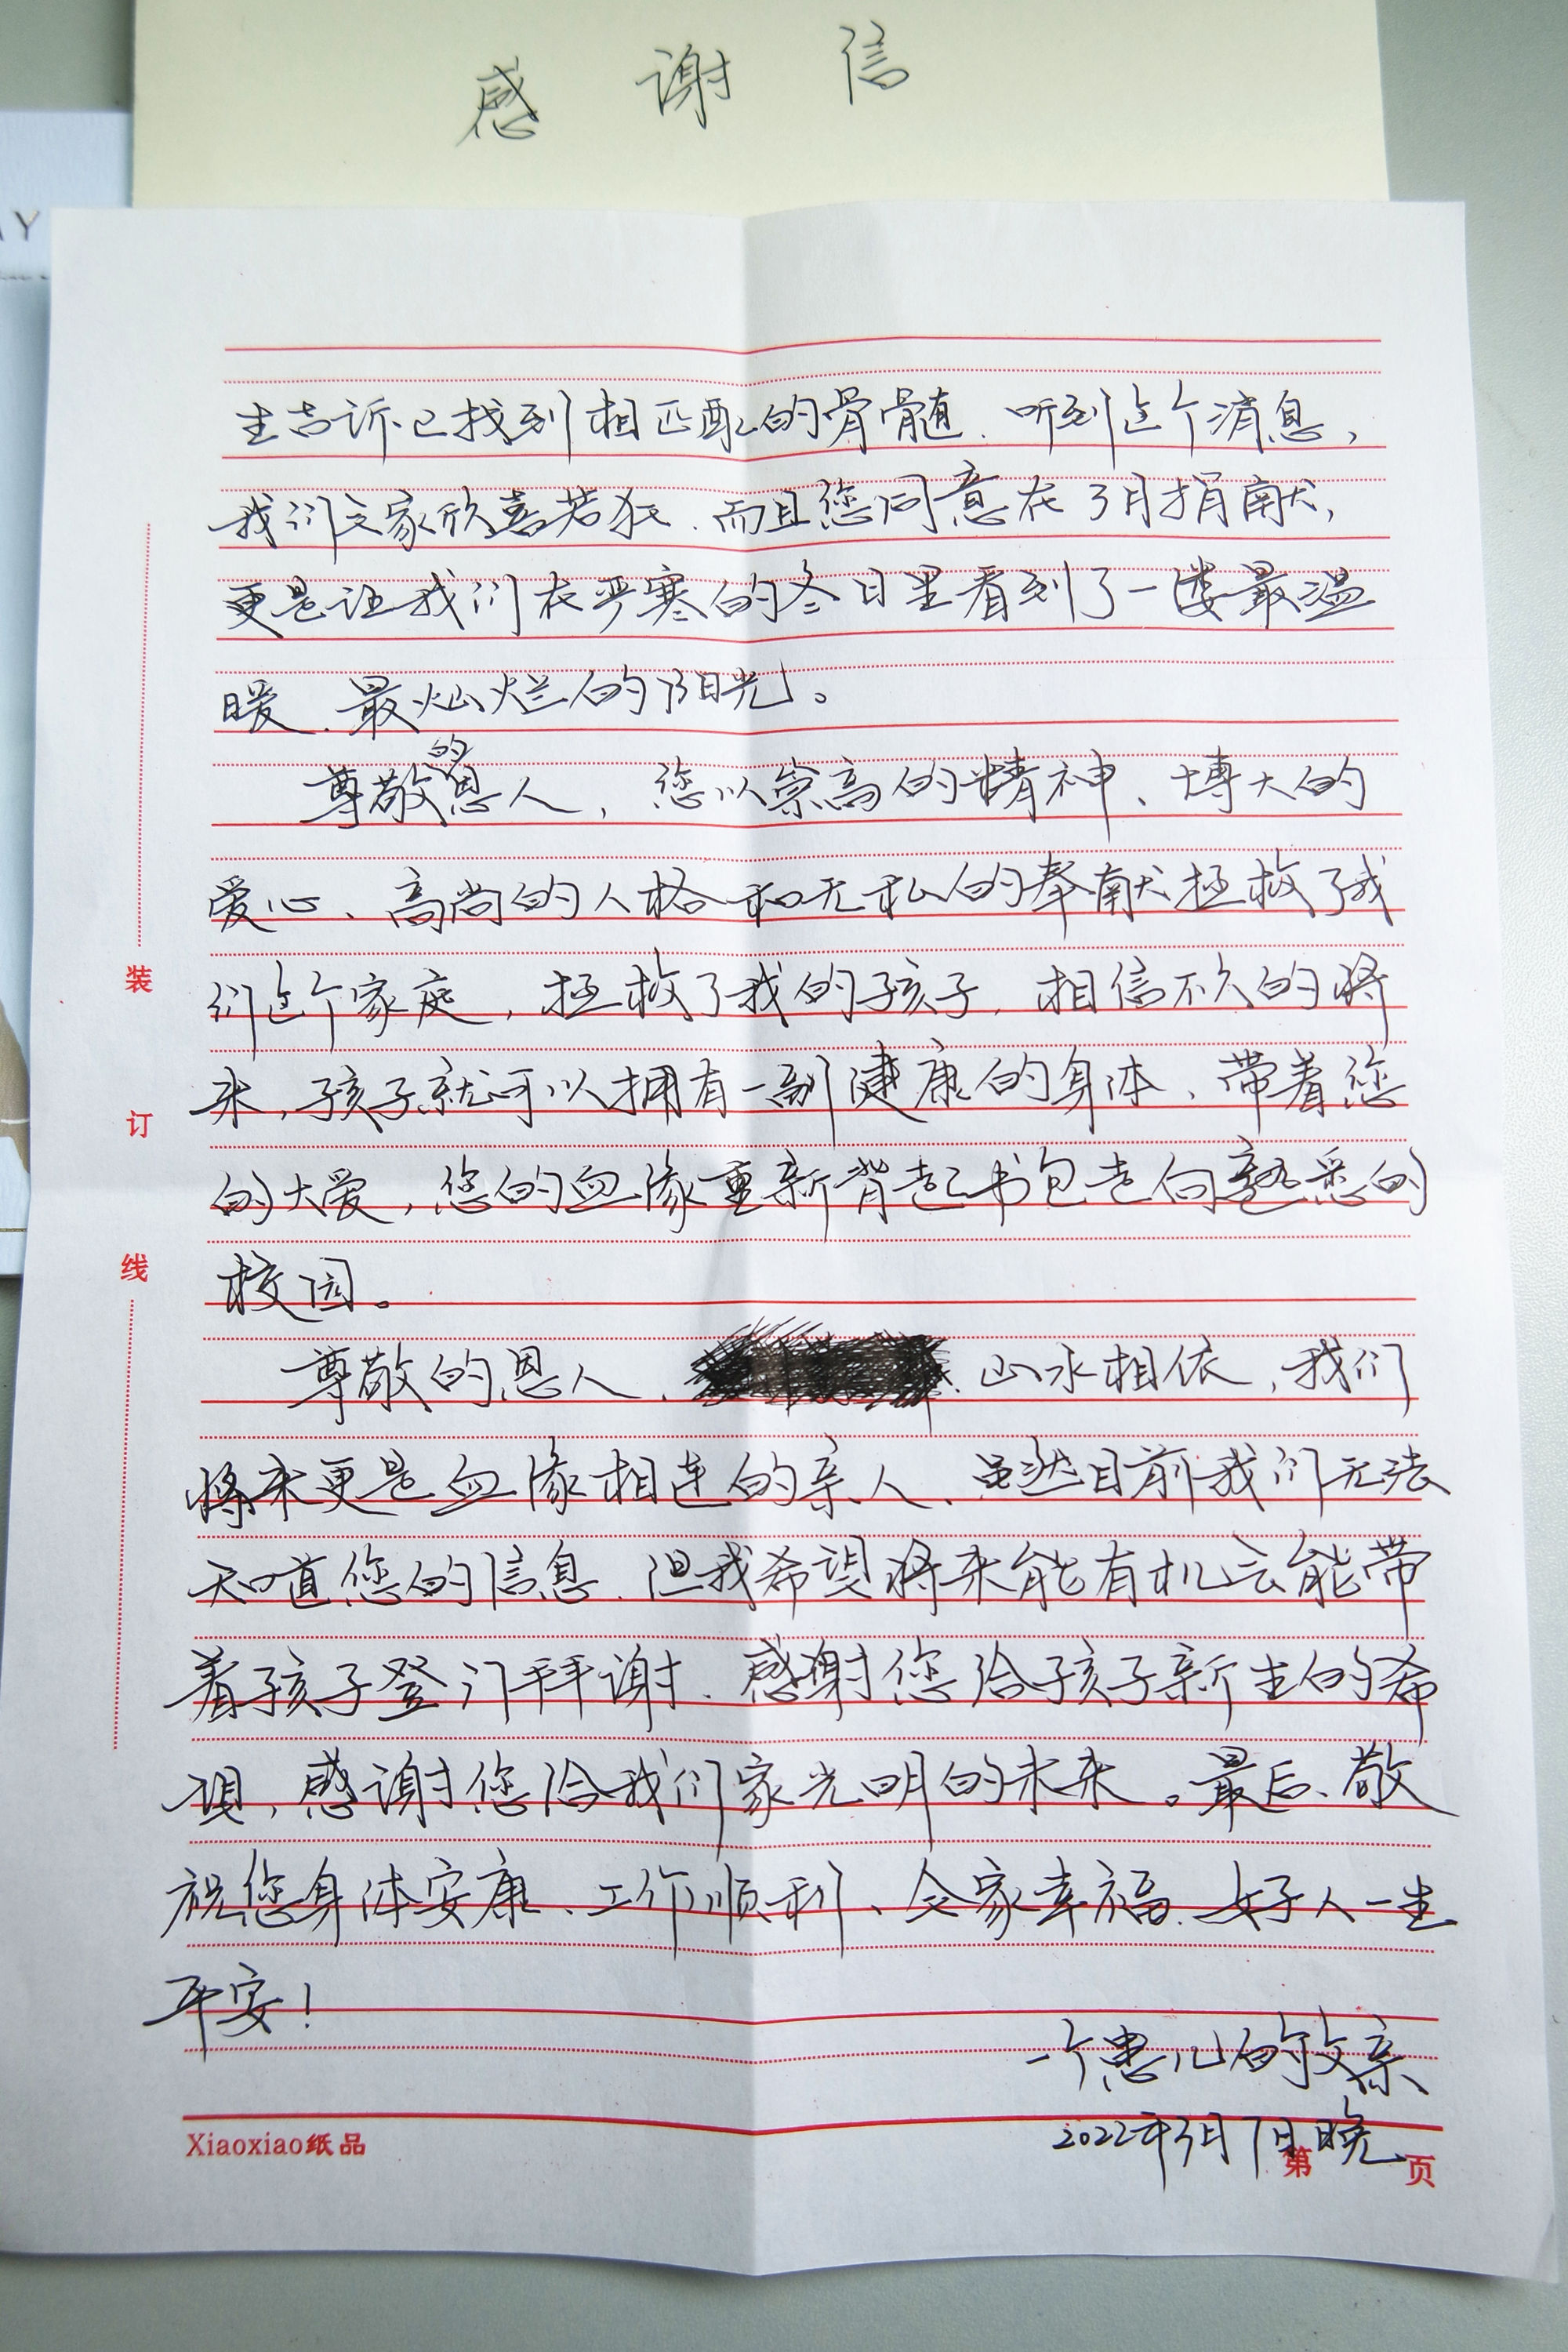 感谢信
AY
生告诉已找到相匹配的骨髓、听到这个消息,
我们全家欣喜若狂、而且您同意在3月捐献,
更是让我们在严寒的冬日里看到了一缕最温
暖、最灿烂的阳光。
尊敬的恩人,您以崇高的精神、博大的
爱心、高尚的人格和无私的奉献拯救了我
们这个家庭,拯救了我的孩子、相信不久的将
来,孩子就可以拥有一副健康的身体、带着您
的大爱,您的血缘重新背起书包走向熟悉的
校园。
尊敬的恩人、山水相依,我们
将来更是血缘相连的亲人、虽然目前我们无法
知道您的信息、但我希望将来能有机会能带
着孩子登门拜谢、感谢您给孩子新生的希
望,感谢您给我们家光明的未来。最后、敬
祝您身体安康、工作顺利、全家幸福、好人一生
平安!
一个患儿的父亲
2022年3月7日晚
装
订
线
Xiaoxiao纸品
第 页